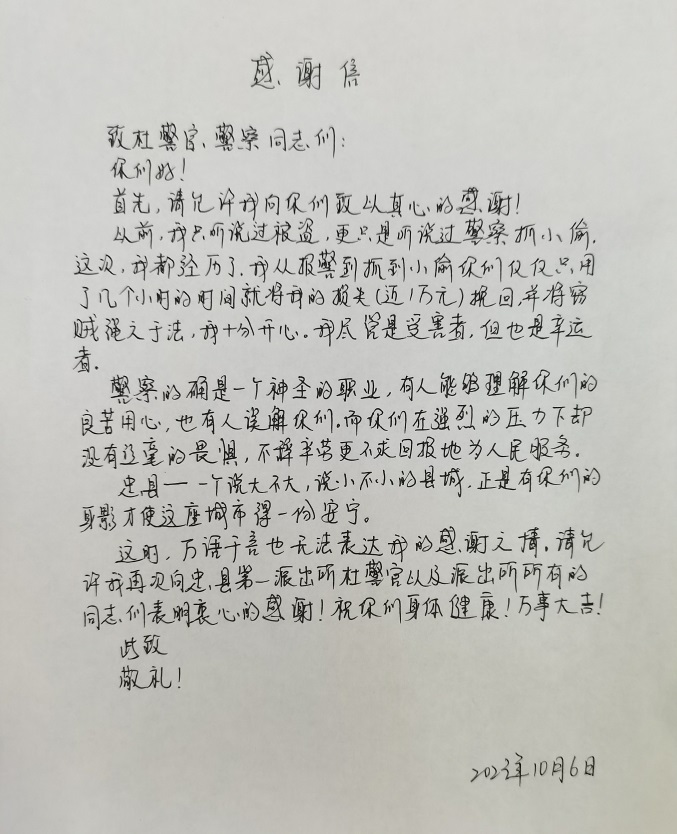 感谢信
致杜警官、警察同志们:
你们好!
首先,请允许我向你们致以真心的感谢!
从前,我只听说过被盗,更只是听说过警察抓小偷.
这次,我都经历了,我从报警到抓到小偷你们仅仅只用
了几个小时的时间就将我的损失(近1万元)挽回,并将窃
贼绳之于法,我十分开心。我尽管是受害者,但也是幸运
者.
警察的确是一个神圣的职业,有人能够理解你们的
良苦用心,也有人误解你们.而你们在强烈的压力下却
没有丝毫的畏惧,不辞辛劳更不求回报地为人民服务.
忠县——一个说大不大,说小不小的县城.正是有你们的
身影才使这座城市得一份安宁。
这时,万语千言也无法表达我的感谢之情.请允
许我再次向忠县第一派出所杜警官以及派出所所有的
同志们表明衷心的感谢!祝你们身体健康!万事大吉!
此致
敬礼!
2023年10月6日